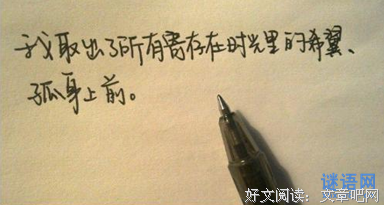 我取出了所有寄存在时光里的希翼、
孤身上前。
谜语网
好文阅读：文章吧网